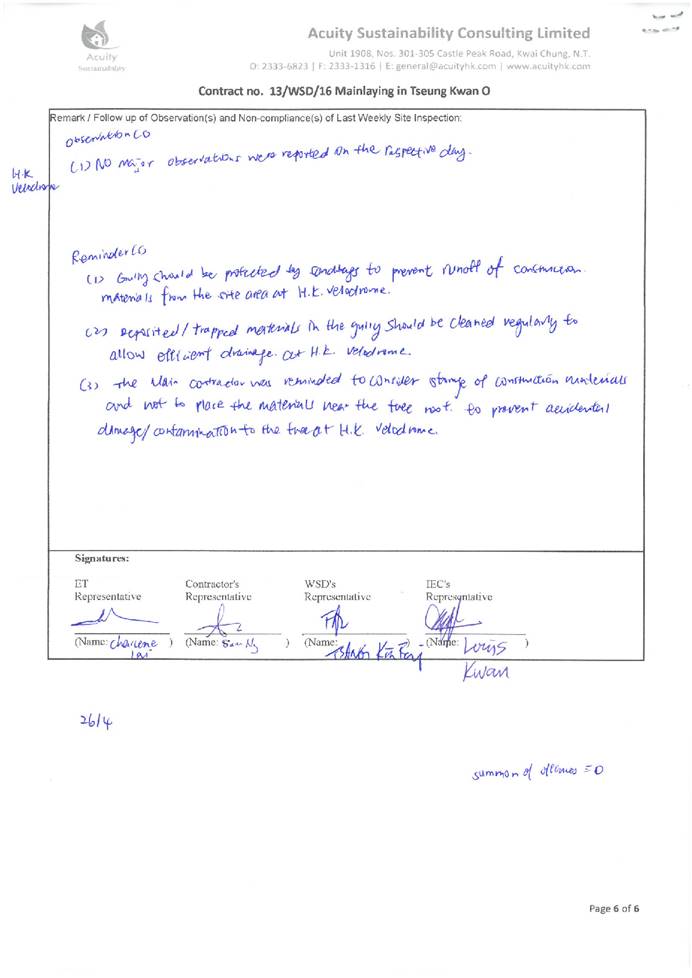 Acuity Sustainability Consulting Limited
Acuity
Sustainability
Unit 1908, Nos. 301-305 Castle Peak Road, Kwai Chung, N.T.
O: 2333-6823 | F: 2333-1316 | E: general@acuityhk.com | www.acuityhk.com
Contract no. 13/WSD/16 Mainlaying in Tseung Kwan O
Remark / Follow up of Observation(s) and Non-compliance(s) of Last Weekly Site Inspection:
Observation(s)
H.K.
Velodrome
(1) No major observations were reported on the respective day.
Reminder(s)
(1) Gully should be protected by sandbags to prevent runoff of construction
materials from the site area at H.K. Velodrome.
(2) Deposited / trapped materials in the gully should be cleaned regularly to
allow efficient drainage at H.K. Velodrome.
(3) The Main contractor was reminded to consider storage of construction materials
and not to place the materials near the tree root to prevent accidental
damage/contamination to the tree at H.K. Velodrome.
Signatures:
ET
Representative
Contractor's
Representative
WSD's
Representative
IEC's
Representative
(Name: Charlene Lai )
(Name: Sam Ng )
(Name: )
(Name: Louis Kwan )
26/4
summon of offences = 0
Page 6 of 6